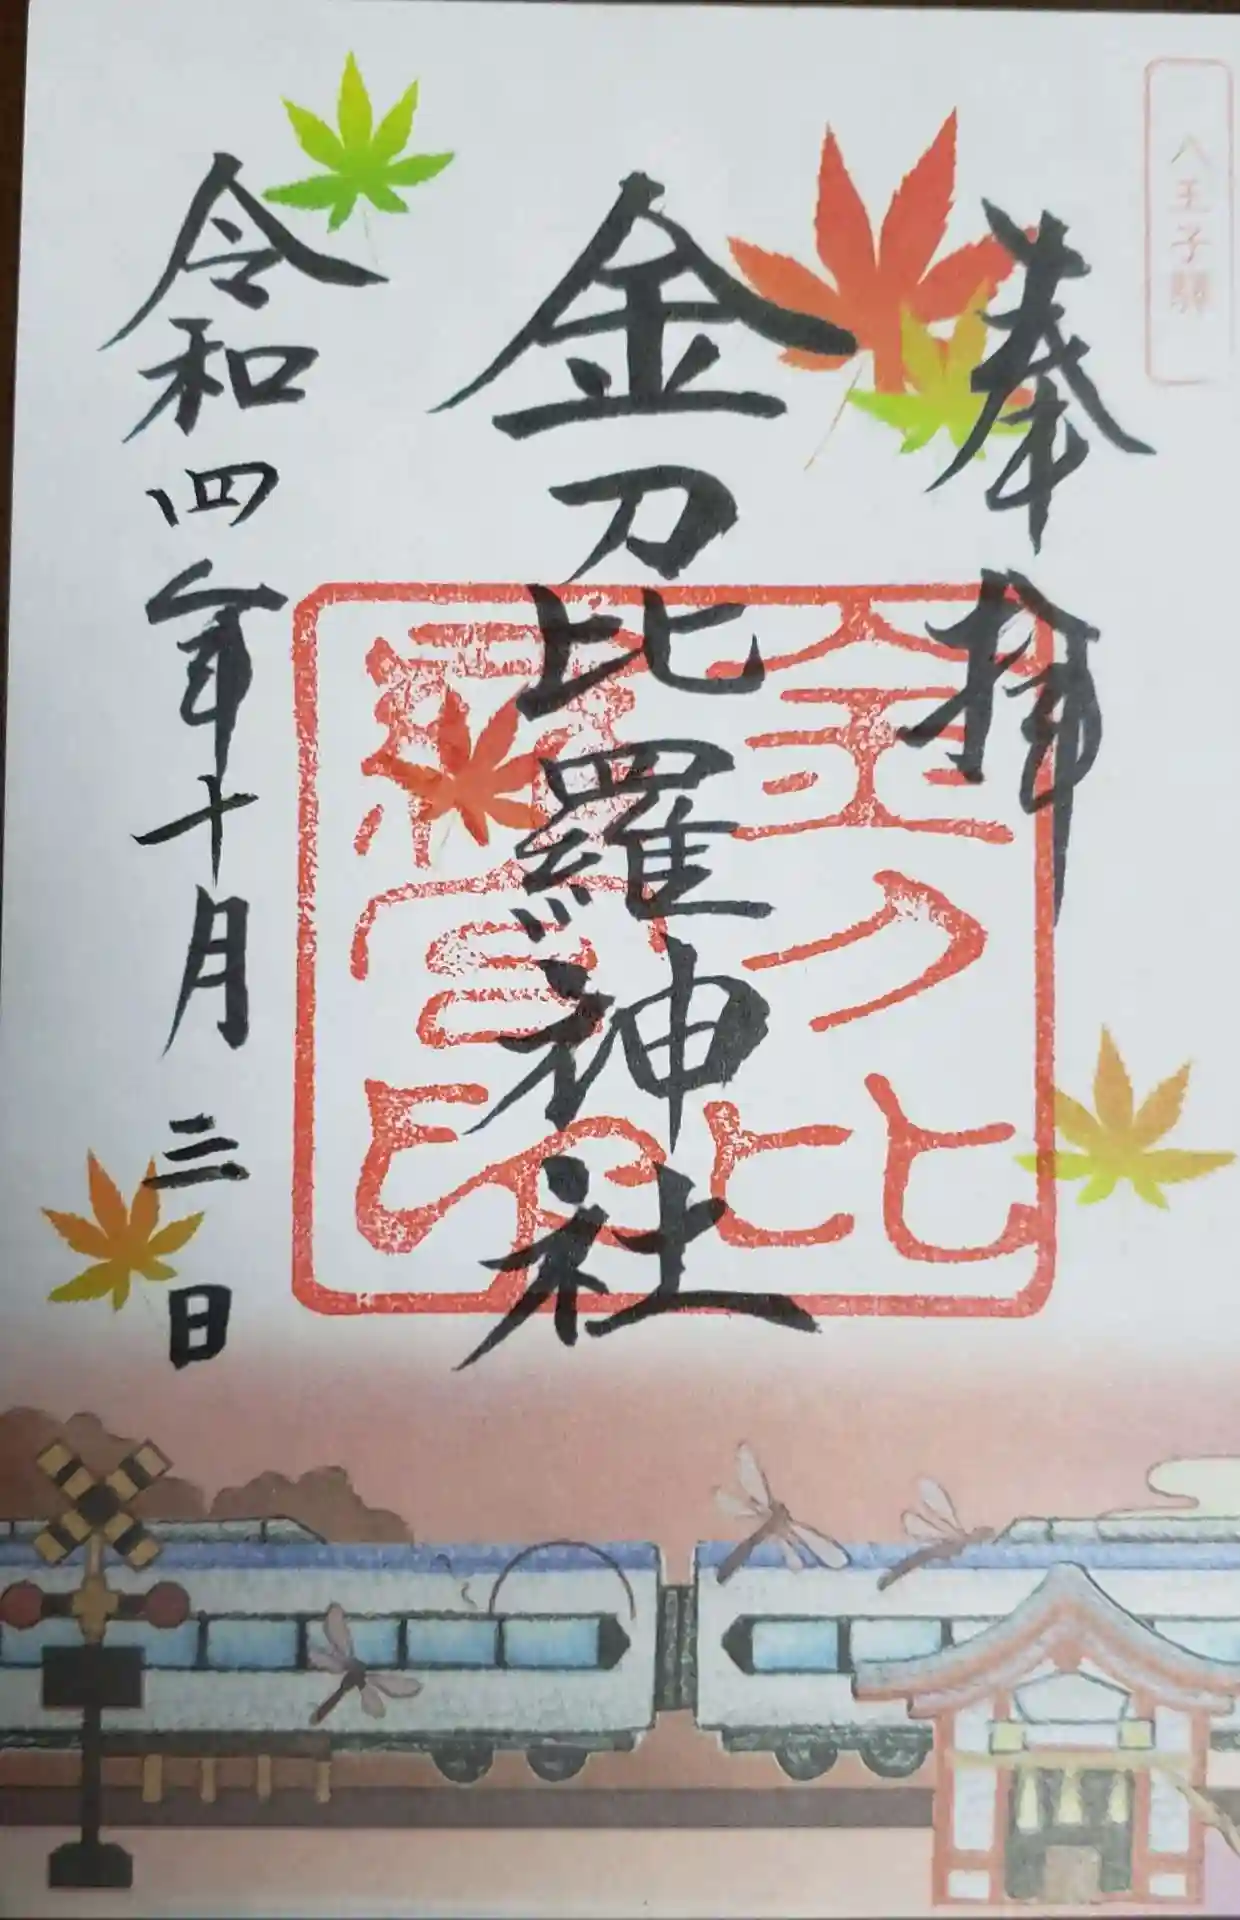 八王子驛
奉拝
金刀比羅神社
令和四年十月三日